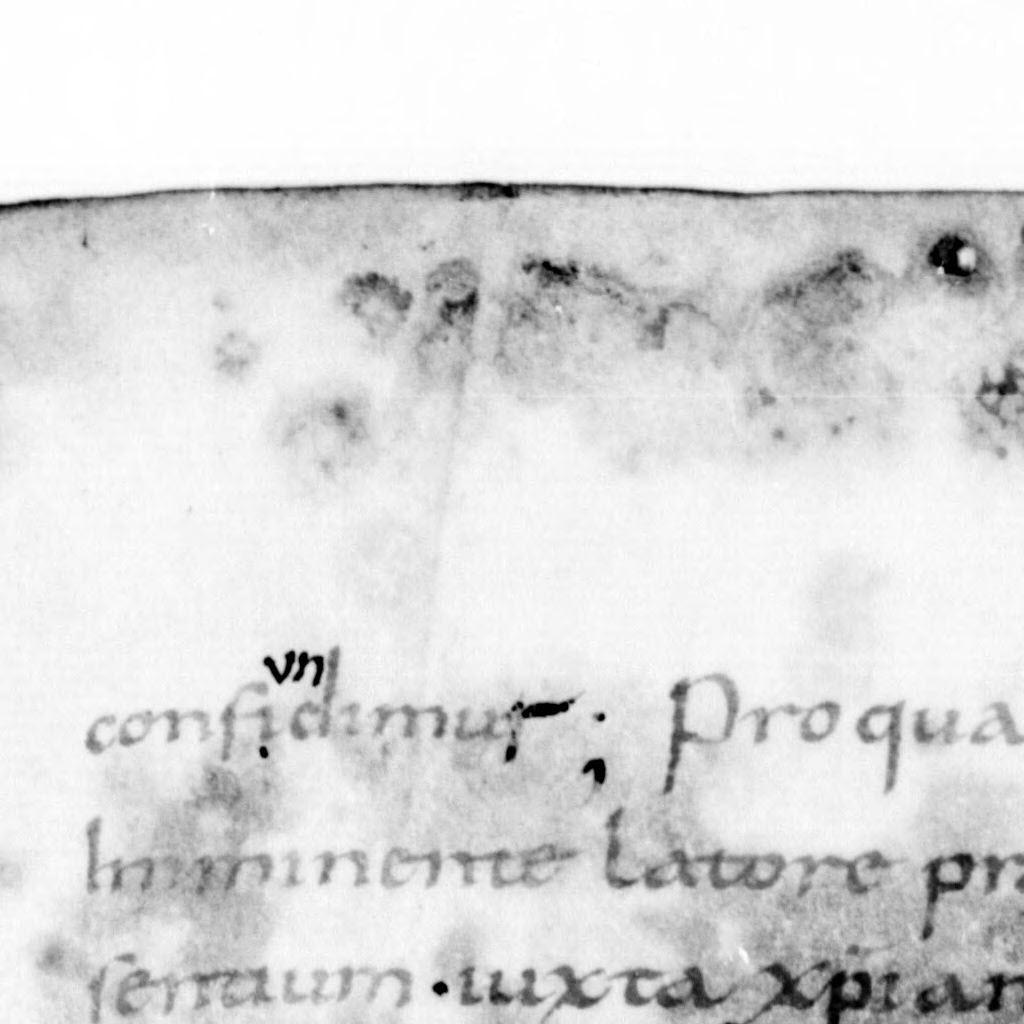 vn
confidimus; Pro qua
Imminente latore pr
sentium · iuxta xpian